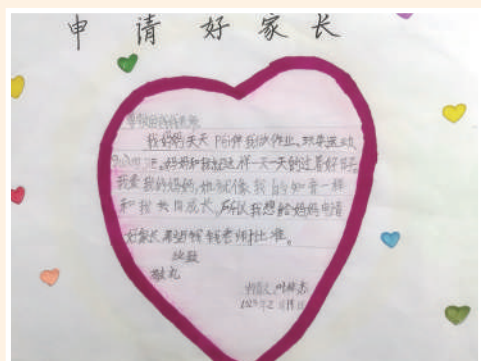 申请好家长
尊敬的钱钱老师
我妈妈天天Pei伴我做作业、玩英运动、
妈妈和我就这样一天一天的过着好日子。
我爱我的妈妈,她就像我的知音一样
和我共同成长,所以我想给妈妈申请
好家长,希望钱钱老师批准。
此致
敬礼
申请人